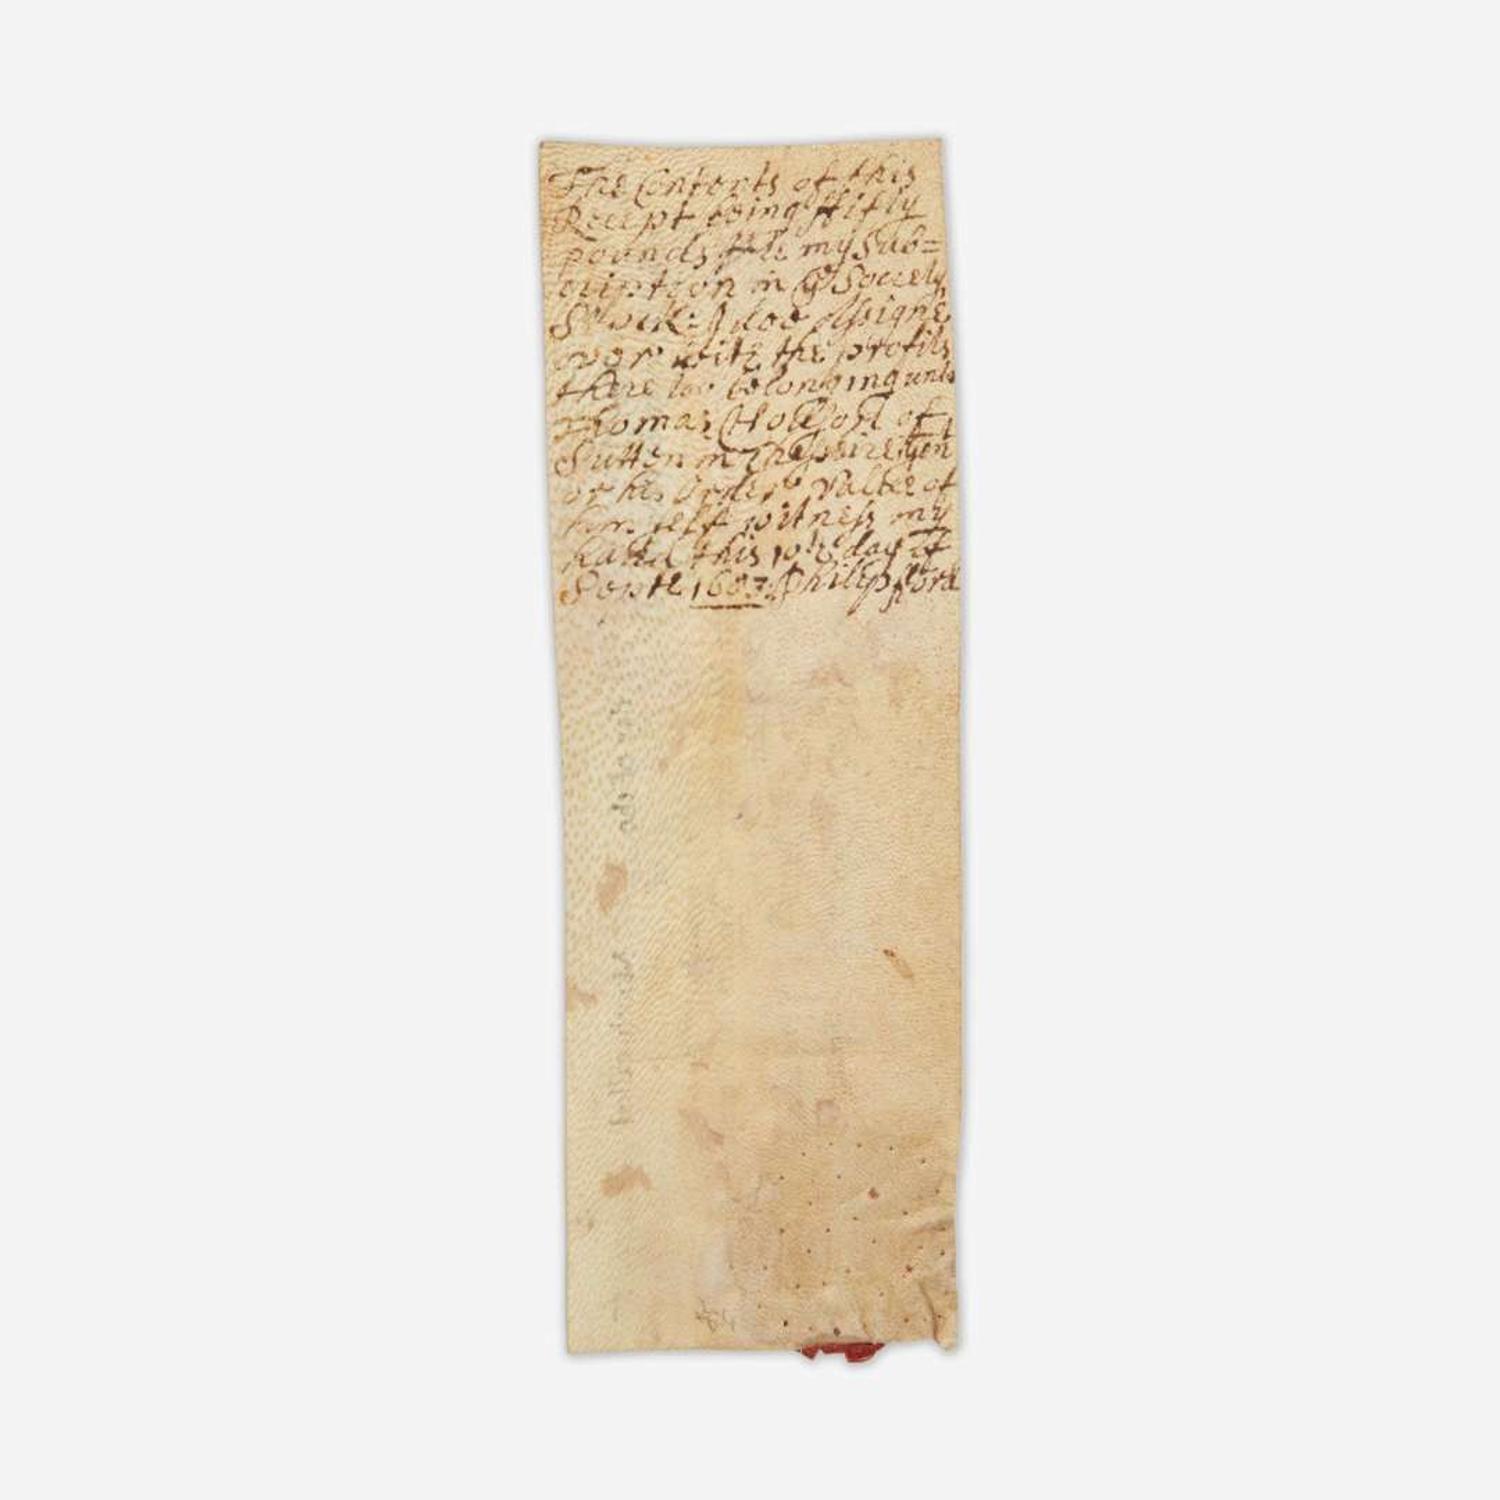 The Contents of this
Receipt being ffifty
pounds my Sub=
cription in ye Society
Stock: I doe assigne
over with the profits
there too belonging unto
Thomas of
Sutten in Chesheire gen
or his order Vallue of
him self witness my
hand this 10th day of
Septe 1683 Philip fford